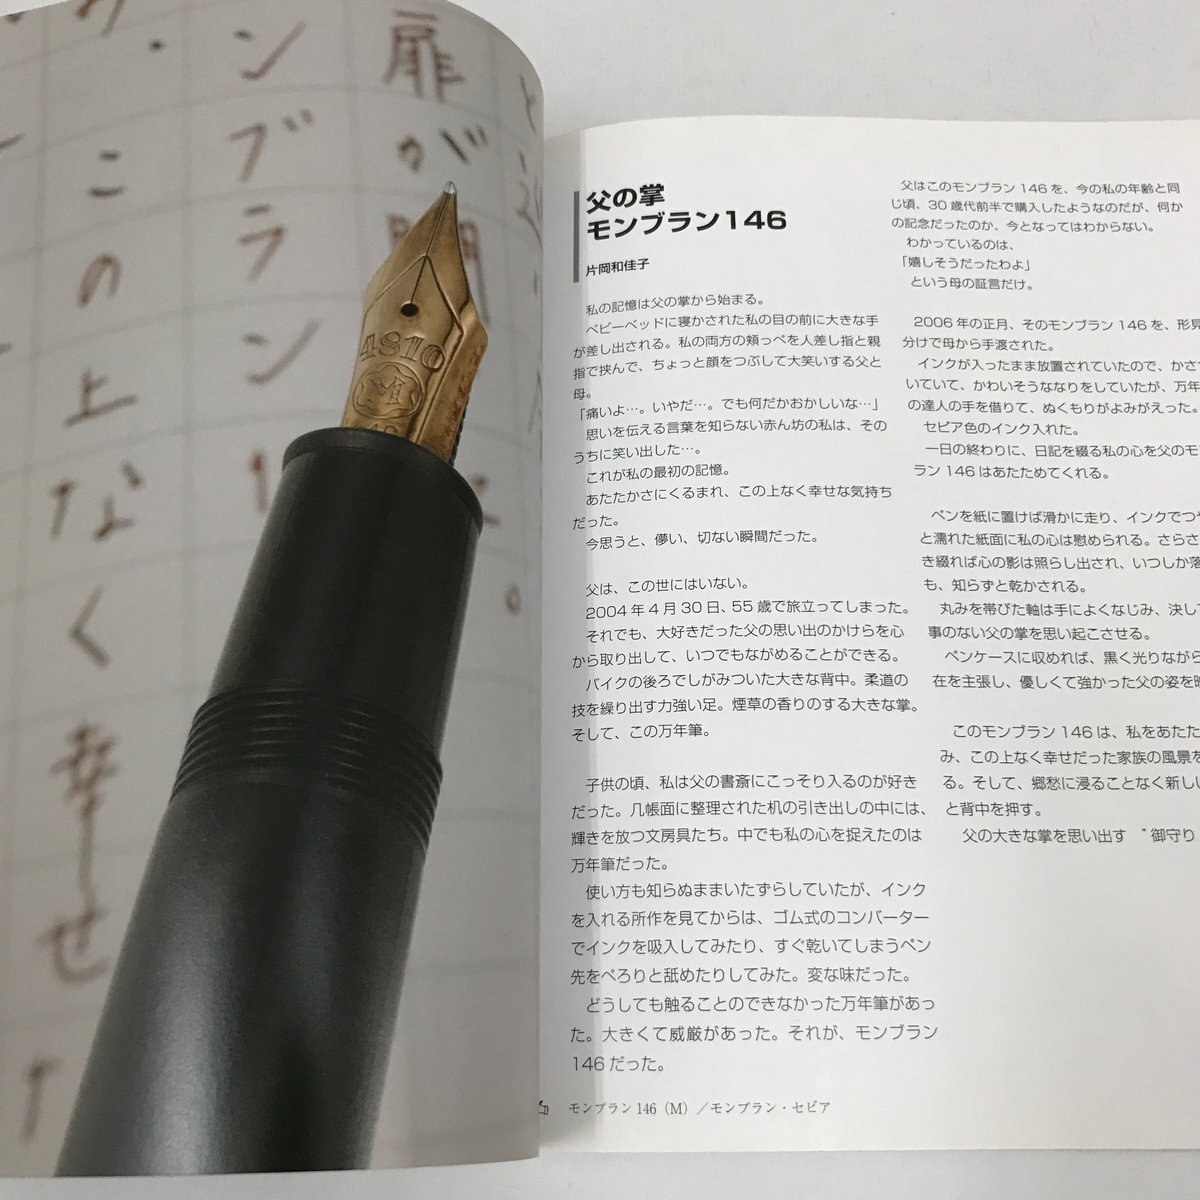 扉が開
ンブラン
この上なく幸せ
4810
M
父の掌
モンブラン146
片岡和佳子
私の記憶は父の掌から始まる。
ベビーベッドに寝かされた私の目の前に大きな手
が差し出される。私の両方の頬っぺを人差し指と親
指で挟んで、ちょっと顔をつぶして大笑いする父と
母。
「痛いよ…。いやだ…。でも何だかおかしいな…」
思いを伝える言葉を知らない赤ん坊の私は、その
うちに笑い出した…。
これが私の最初の記憶。
あたたかさにくるまれ、この上なく幸せな気持ち
だった。
今思うと、儚い、切ない瞬間だった。
父は、この世にはいない。
2004年4月30日、55歳で旅立ってしまった。
それでも、大好きだった父の思い出のかけらを心
から取り出して、いつでもながめることができる。
バイクの後ろでしがみついた大きな背中。柔道の
技を繰り出す力強い足。煙草の香りのする大きな掌。
そして、この万年筆。
子供の頃、私は父の書斎にこっそり入るのが好き
だった。几帳面に整理された机の引き出しの中には、
輝きを放つ文房具たち。中でも私の心を捉えたのは
万年筆だった。
使い方も知らぬままいたずらしていたが、インク
を入れる所作を見てからは、ゴム式のコンバーター
でインクを吸入してみたり、すぐ乾いてしまうペン
先をぺろりと舐めたりしてみた。変な味だった。
どうしても触ることのできなかった万年筆があっ
た。大きくて威厳があった。それが、モンブラン
146だった。
父はこのモンブラン146を、今の私の年齢と同
じ頃、30歳代前半で購入したようなのだが、何か
の記念だったのか、今となってはわからない。
わかっているのは、
「嬉しそうだったわよ」
という母の証言だけ。
2006年の正月、そのモンブラン146を、形見
分けで母から手渡された。
インクが入ったまま放置されていたので、かさ
いていて、かわいそうななりをしていたが、万年
の達人の手を借りて、ぬくもりがよみがえった。
セピア色のインク入れた。
一日の終わりに、日記を綴る私の心を父のモ
ラン146はあたためてくれる。
ペンを紙に置けば滑かに走り、インクでつや
と濡れた紙面に私の心は慰められる。さらさ
き綴れば心の影は照らし出され、いつしか落
も、知らずと乾かされる。
丸みを帯びた軸は手によくなじみ、決して
事のない父の掌を思い起こさせる。
ペンケースに収めれば、黒く光りながら
在を主張し、優しくて強かった父の姿を
このモンブラン146は、私をあたた
み、この上なく幸せだった家族の風景を
る。そして、郷愁に浸ることなく新しい
と背中を押す。
父の大きな掌を思い出す “御守り
モンブラン146（M）／モンブラン・セピア